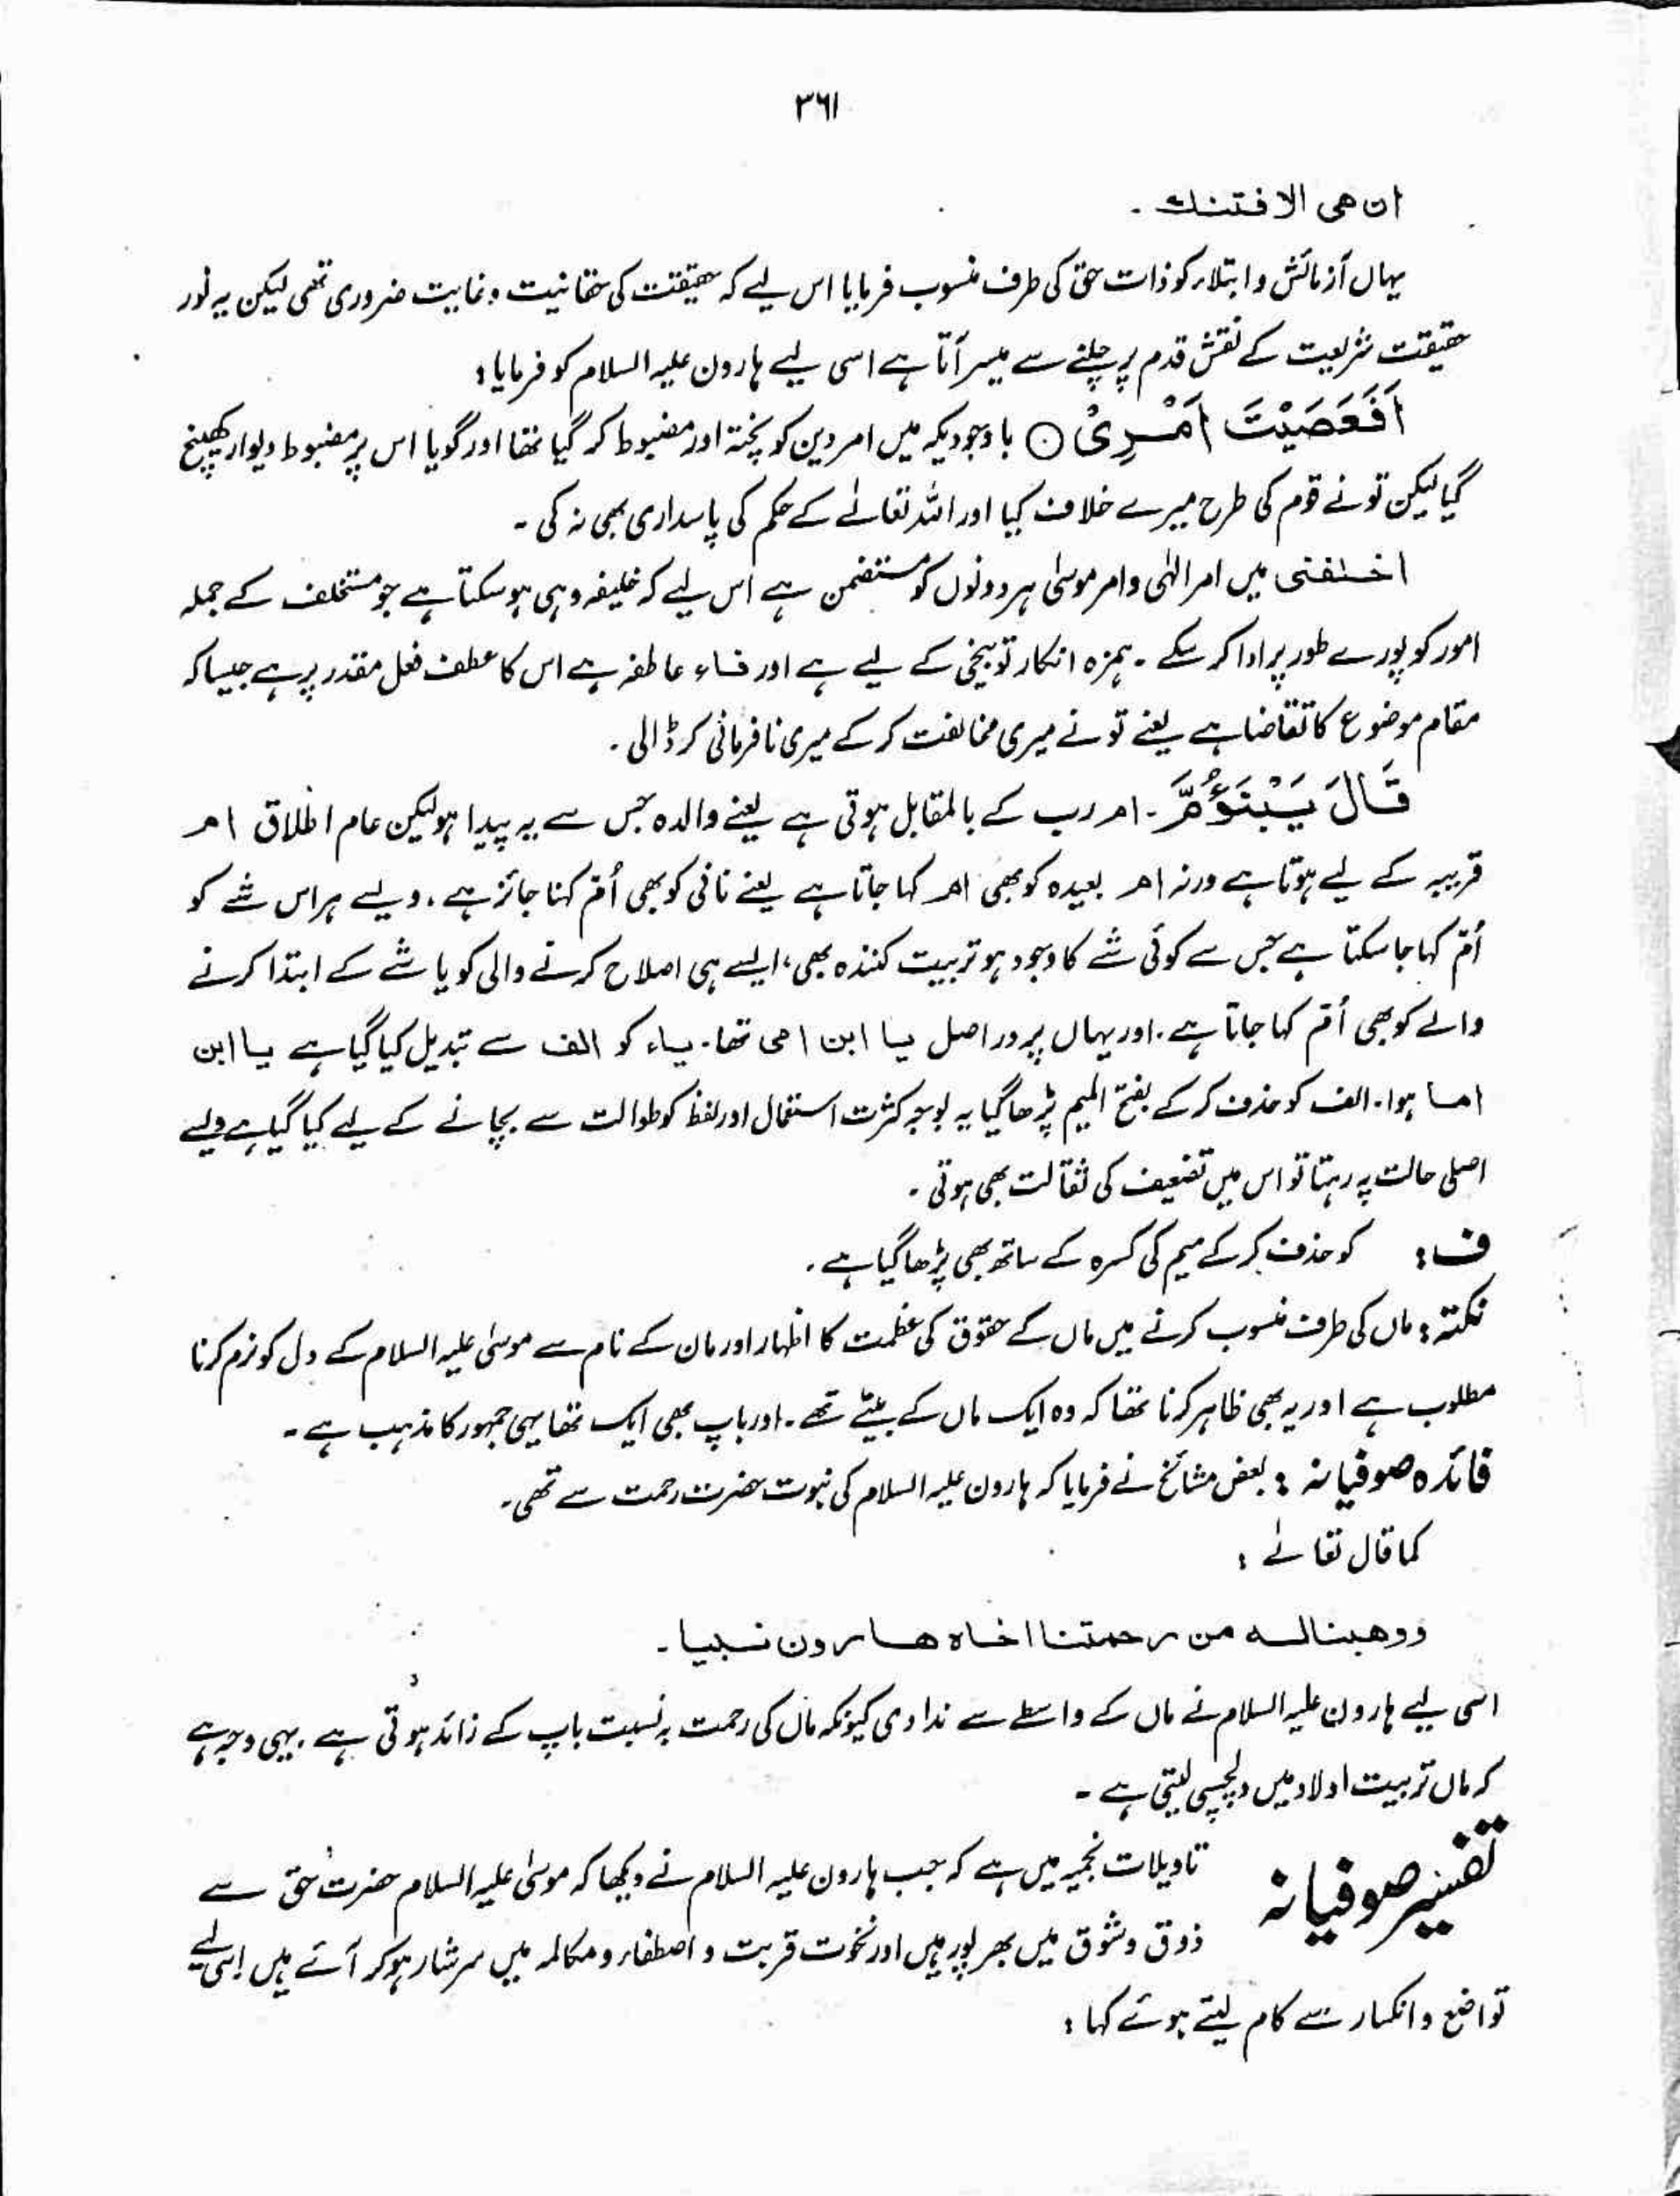 ۳۶۱
ان ھی الا فتنتك ۔
یہاں آزمائش و ابتلاء کو ذات حق کی طرف منسوب فرمایا اس لیے کہ حقیقت کی حقانیت و غایت ضروری تھی لیکن یہ نور
حقیقت شریعت کے نقش قدم پر چلنے سے میسر آتا ہے اسی لیے ہارون علیہ السلام کو فرمایا :
اَفَعَصَیْتَ اَمْرِیْ ○ باوجودیکہ میں امر دین کو پختہ اور مضبوط کر گیا تھا اور گویا اس پر مضبوط دیوار کھینچ
گیا لیکن تو نے قوم کی طرح میرے خلاف کیا اور اللہ تعالےٰ کے حکم کی پاسداری بھی نہ کی ۔
اخلفنی میں امر الٰہی و امر موسیٰ ہر دونوں کو متضمن ہے اس لیے کہ خلیفہ وہی ہو سکتا ہے جو مستخلف کے جملہ
امور کو پورے طور پر ادا کر سکے ۔ ہمزہ انکار توبیخی کے لیے ہے اور فاء عاطفہ ہے اس کا عطف فعل مقدر پر ہے جیسا کہ
مقام موضوع کا تقاضا ہے یعنے تو نے میری مخالفت کر کے میری نافرمانی کر ڈالی ۔
قَالَ یَبْنَؤُمَّ ۔ ام رب کے بالمقابل ہوتی ہے یعنے والدہ جس سے یہ پیدا ہو لیکن عام اطلاق ام
قریبہ کے لیے ہوتا ہے ورنہ ام بعیدہ کو بھی ام کہا جاتا ہے یعنے نانی کو بھی اُمّ کہنا جائز ہے ، ویسے ہر اس شے کو
اُمّ کہا جا سکتا ہے جس سے کوئی شے کا وجود ہو تربیت کنندہ بھی ، ایسے ہی اصلاح کرنے والی کو یا شے کے ابتدا کرنے
والے کو بھی اُمّ کہا جاتا ہے ۔ اور یہاں پر دراصل یا ابن امی تھا ۔ یاء کو الف سے تبدیل کیا گیا ہے یا ابن
اما ہوا ۔ الف کو حذف کر کے بفتح المیم پڑھا گیا یہ بوجہ کثرت استعمال اور لفظ کو طوالت سے بچانے کے لیے کیا گیا ہے ویسے
اصلی حالت پہ رہتا تو اس میں تضعیف کی ثقالت بھی ہوتی ۔
ف : کو حذف کر کے میم کی کسرہ کے ساتھ بھی پڑھا گیا ہے ۔
نکتہ : ماں کی طرف منسوب کرنے میں ماں کے حقوق کی عظمت کا اظہار اور مان کے نام سے موسیٰ علیہ السلام کے دل کو نرم کرنا
مطلوب ہے اور یہ بھی ظاہر کرنا تھا کہ وہ ایک ماں کے بیٹے تھے ۔ اور باپ بھی ایک تھا یہی جمہور کا مذہب ہے ۔
فائدہ صوفیانہ : بعض مشائخ نے فرمایا کہ ہارون علیہ السلام کی نبوت حضرت رحمت سے تھی ۔
کما قال تعالےٰ :
ووھبنا لہ من رحمتنا اخاہ ھارون نبیا ۔
اسی لیے ہارون علیہ السلام نے ماں کے واسطے سے ندا دی کیونکہ ماں کی رحمت بہ نسبت باپ کے زائد ہوتی ہے ۔ یہی وجہ ہے
کہ ماں تربیت اولاد میں دلچسپی لیتی ہے ۔
تفسیر صوفیانہ تاویلات نجمیہ میں ہے کہ جب ہارون علیہ السلام نے دیکھا کہ موسیٰ علیہ السلام حضرت حق سے
ذوق و شوق میں بھرپور ہیں اور نخوت قربت و اصطفاء و مکالمہ میں سرشار ہو کر آئے ہیں اسی لیے
تواضع و انکسار سے کام لیتے ہوئے کہا :